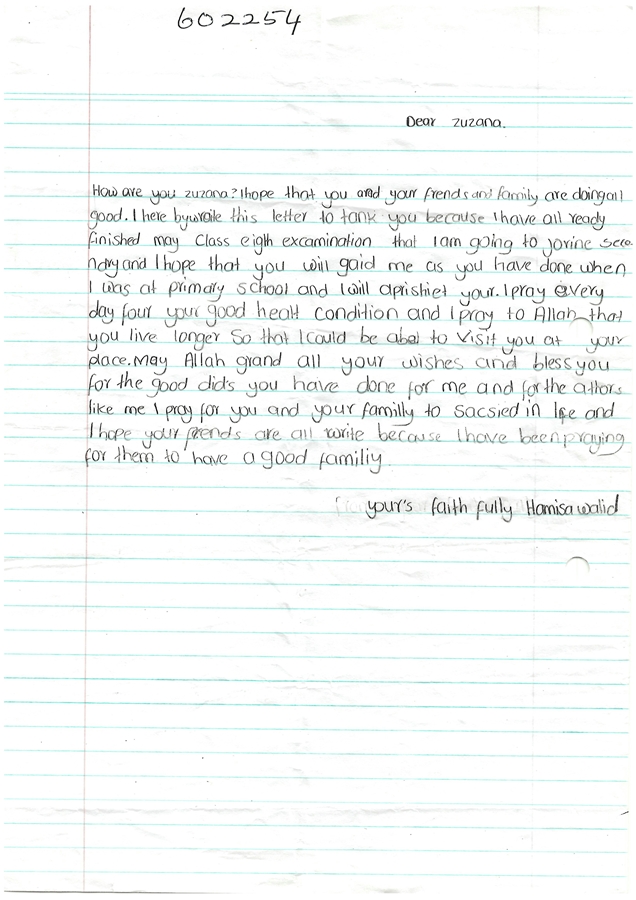 602254
Dear zuzana.
How are you zuzana? I hope that you and your frends and family are doing all
good. I here by wraite this letter to tank you because I have all ready
finished may Class eigth excamination that I am going to jorine seco-
ndry and I hope that you will gaid me as you have done when
I was at primary school and I will aprishiet your. I pray every
day four your good healt condition and I pray to Allah that
you live longer So that I could be abel to visit you at your
place. May Allah grand all your wishes and bless you
for the good did's you have done for me and for the athors
like me I pray for you and your familly to sacsied in life and
I hope your frends are all write because I have been praying
for them to have a good familiy.
your's faith fully Hamisa walid